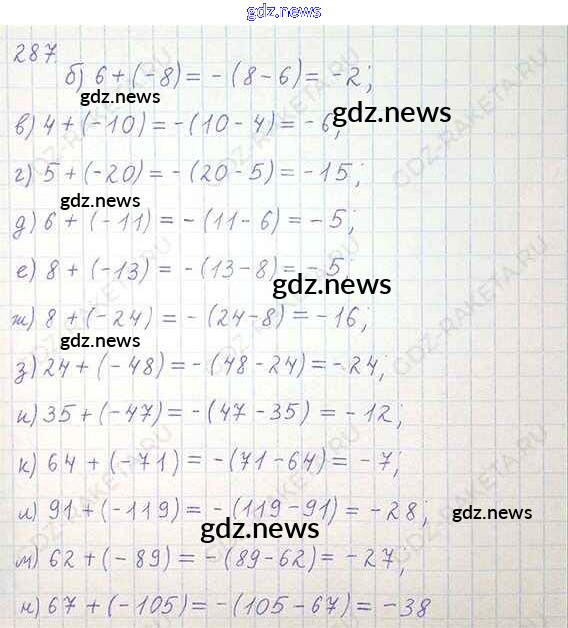 gdz.news
287.
б) 6 + (-8) = -(8 - 6) = -2;
gdz.news
gdz.news
в) 4 + (-10) = -(10 - 4) = -6;
г) 5 + (-20) = -(20 - 5) = -15;
gdz.news
д) 6 + (-11) = -(11 - 6) = -5;
е) 8 + (-13) = -(13 - 8) = -5;
gdz.news
ж) 8 + (-24) = -(24 - 8) = -16;
gdz.news
з) 24 + (-48) = -(48 - 24) = -24;
и) 35 + (-47) = -(47 - 35) = -12;
к) 64 + (-71) = -(71 - 64) = -7;
л) 91 + (-119) = -(119 - 91) = -28;
gdz.news
gdz.news
м) 62 + (-89) = -(89 - 62) = -27;
н) 67 + (-105) = -(105 - 67) = -38
GDZ-RAKETA.RU
GDZ-RAKETA.RU
GDZ-RAKETA.RU
GDZ-RAKETA.RU
GDZ-RAKETA.RU
GDZ-RAKETA.RU